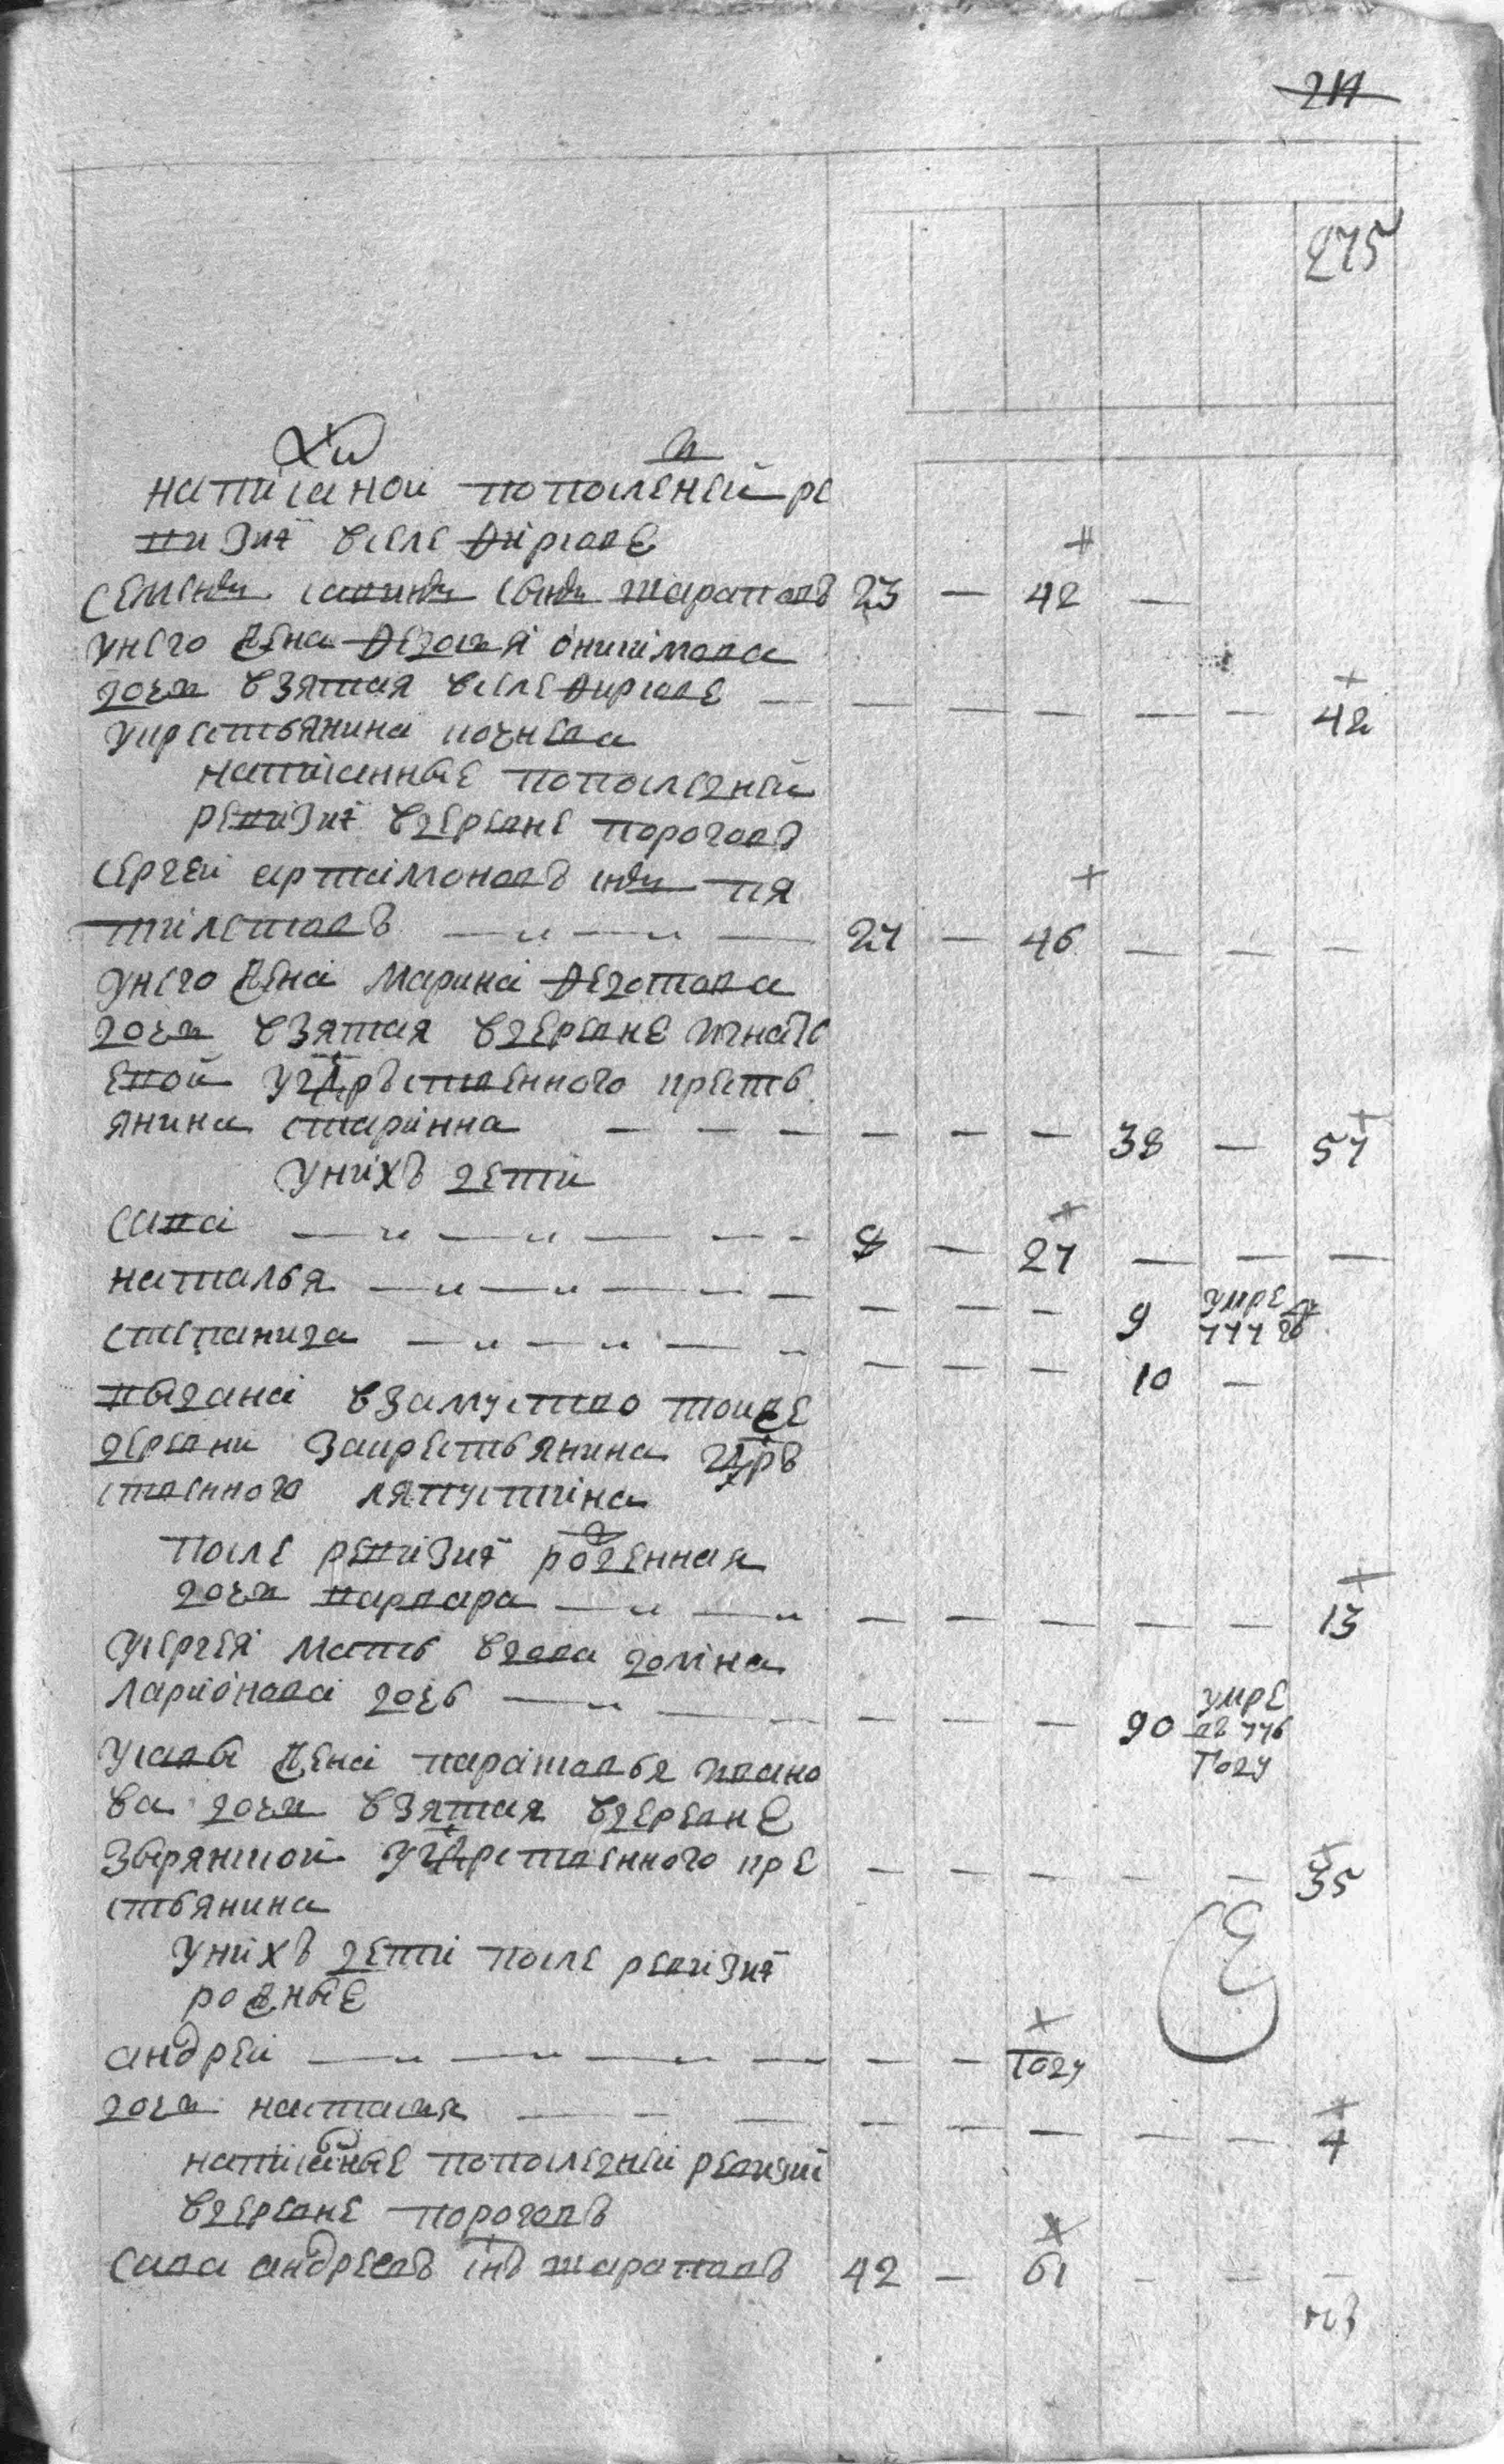 211
275
написаной попоследней ре
визиі вселе Фирсове
Семенъ савинъ сынъ шараповъ 23 — 42 —
унего жена Федосья онисімова
дочи взятая вселе Фирсове — — — — — — 42
укрестьянина
написанные попоследней
ревизиі вдеревне пороговъ
сергеи артамоновъ снъ пя
тилетовъ — 27 — 46 — — —
унего жена марина Федотова
дочи взятая вдеревне игнать
евой угдрьственного кресть
янина старінна — — — — — — 38 — 57
унихъ дети
сава — — — 8 — 27 — — —
наталья — — — — — — 9 умре 777 го
степанида — — — — — — 10 —
выдана взамуство тоиже
деревни закрестьянина гдрь
ственного ляпустіна
после ревизиі роженная
дочи варвара — — — — — — 13
усергея мать вдова домна
ларионова дочь — — — — — 90 умре
въ 776
году
усавы жена парасковья ивано
ва дочи взятая вдеревне
зырянской угдрственного кре — — — — — 35
стьянина
унихъ дети после ревизиі
рожные
андреи — — — — — году
дочи настасья — — — — — — 4
написанные попоследней ревизиі
вдеревне пороговъ
сава андреевъ снъ шараповъ 42 — 61 — — —